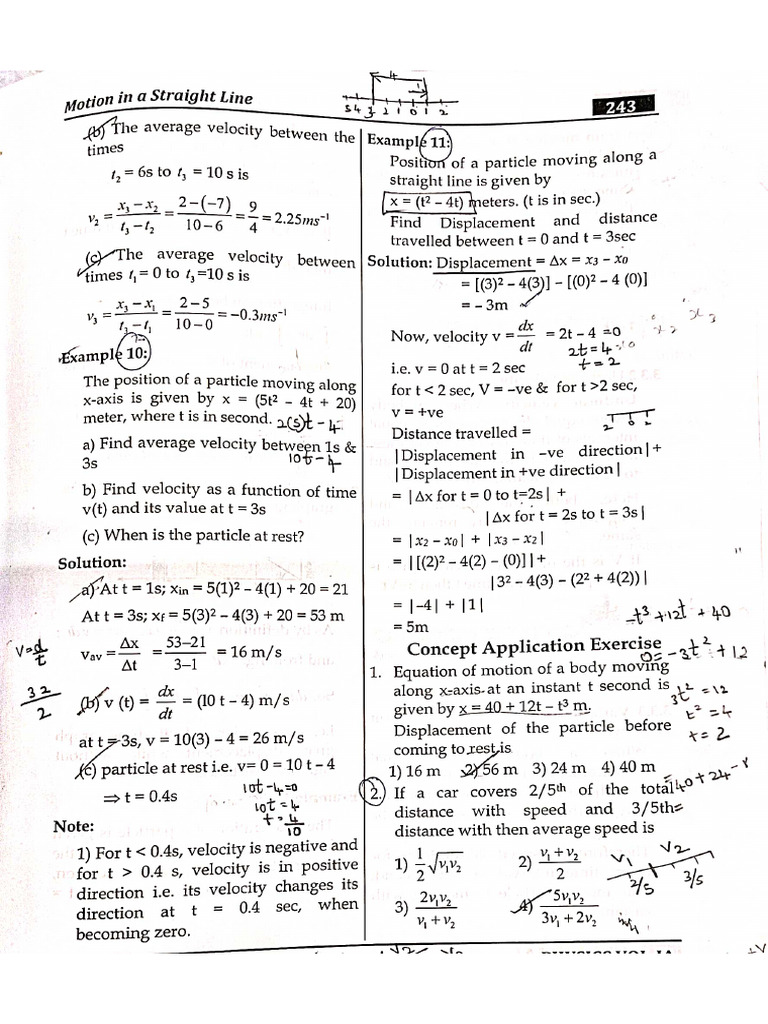 Motion in a Straight Line
243
4
1
5 4 3 2 1 0 1 2
(b) The average velocity between the
times
t₂ = 6s to t₃ = 10 s is
v₂ = (x₃ – x₂)/(t₃ – t₂) = (2 – (–7))/(10 – 6) = 9/4 = 2.25ms⁻¹
(c) The average velocity between
times t₁ = 0 to t₃ =10 s is
v₃ = (x₃ – x₁)/(t₃ – t₁) = (2 – 5)/(10 – 0) = –0.3ms⁻¹
Example 10:
The position of a particle moving along
x-axis is given by x = (5t² – 4t + 20)
meter, where t is in second. 2(5)t – 4
a) Find average velocity between 1s &
3s
10t – 4
b) Find velocity as a function of time
v(t) and its value at t = 3s
(c) When is the particle at rest?
Solution:
a) At t = 1s; xin = 5(1)² – 4(1) + 20 = 21
At t = 3s; xf = 5(3)² – 4(3) + 20 = 53 m
V=d/t
vav = Δx/Δt = (53–21)/(3–1) = 16 m/s
32/2
(b) v (t) = dx/dt = (10 t – 4) m/s
at t = 3s, v = 10(3) – 4 = 26 m/s
(c) particle at rest i.e. v= 0 = 10 t – 4
⇒ t = 0.4s
10t – 4 = 0
10t = 4
t = 4/10
Note:
1) For t < 0.4s, velocity is negative and
for t > 0.4 s, velocity is in positive
direction i.e. its velocity changes its
direction at t = 0.4 sec, when
becoming zero.
Example 11:
Position of a particle moving along a
straight line is given by
x = (t² – 4t) meters. (t is in sec.)
Find Displacement and distance
travelled between t = 0 and t = 3sec
Solution: Displacement = Δx = x₃ – x₀
= [(3)² – 4(3)] – [(0)² – 4 (0)]
= – 3m
Now, velocity v = dx/dt = 2t – 4 =0
2t = 4
t = 2
i.e. v = 0 at t = 2 sec
for t < 2 sec, V = –ve & for t >2 sec,
v = +ve
2 0 2
Distance travelled =
|Displacement in –ve direction|+
|Displacement in +ve direction|
= |Δx for t = 0 to t=2s| +
|Δx for t = 2s to t = 3s|
= |x₂ – x₀| + |x₃ – x₂|
= |[(2)² – 4(2) – (0)]|+
|3² – 4(3) – (2² + 4(2))|
= |–4| + |1|
= 5m
–t³ + 12t + 40
Concept Application Exercise
0 = –3t² + 12
1. Equation of motion of a body moving
along x-axis at an instant t second is
given by x = 40 + 12t – t³ m.
3t² = 12
t² = 4
t = 2
Displacement of the particle before
coming to rest is
1) 16 m 2) 56 m 3) 24 m 4) 40 m
= 40 + 24 –
2. If a car covers 2/5th of the total
distance with speed and 3/5th
distance with then average speed is
1) 1/2 √v₁v₂ 2) (v₁ + v₂)/2
3) 2v₁v₂/(v₁ + v₂) 4) 5v₁v₂/(3v₁ + 2v₂)
V1 V2
2/5 3/5